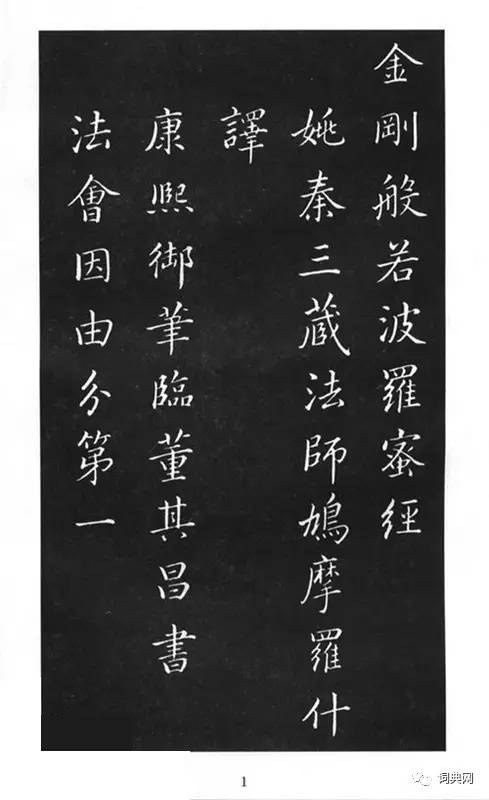 金剛般若波羅蜜經
姚秦三藏法師鳩摩羅什
譯
康熙御筆臨董其昌書
法會因由分第一
1
词典网